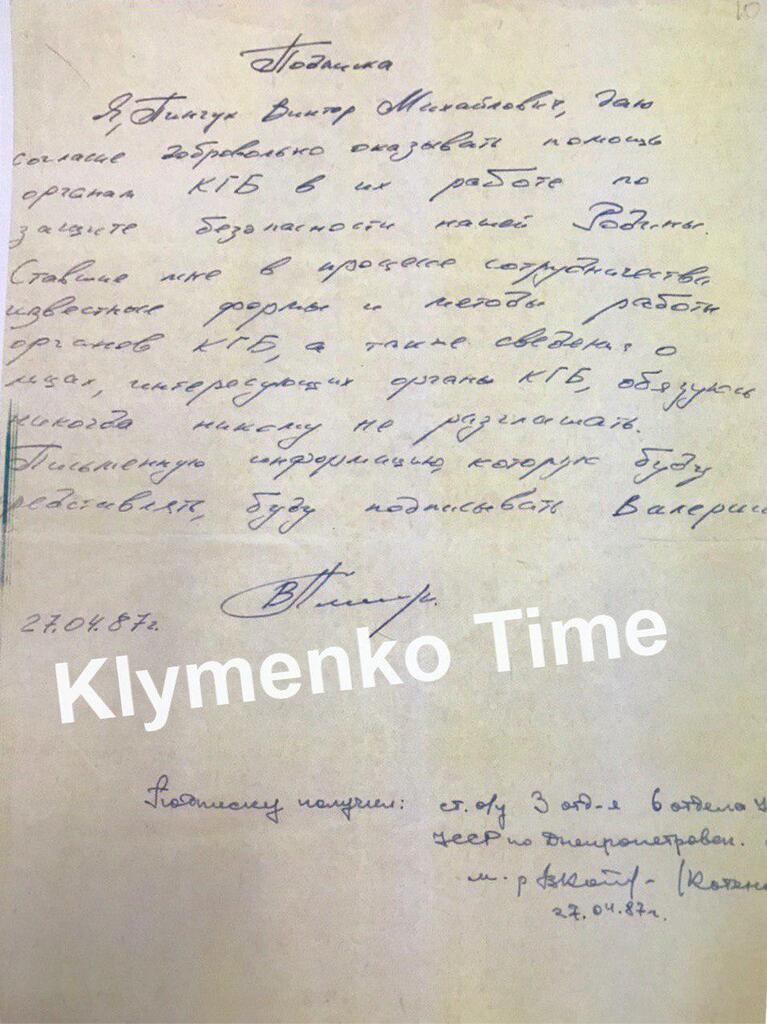 10
Подписка
Я, Пинчук Виктор Михайлович, даю
согласие добровольно оказывать помощь
органам КГБ в их работе по
защите безопасности нашей Родины.
Ставшие мне в процессе сотрудничества
известные формы и методы работы
органов КГБ, а также сведения о
лицах, интересующих органы КГБ, обязуюсь
никогда никому не разглашать.
Письменную информацию, которую буду
редставлять, буду подписывать Валери
27.04.87г.
Klymenko Time
Подписку получил: ст. о/у 3 отд-я 6 отдела
УССР по Днепропетровск.
м-р
27.04.87г.